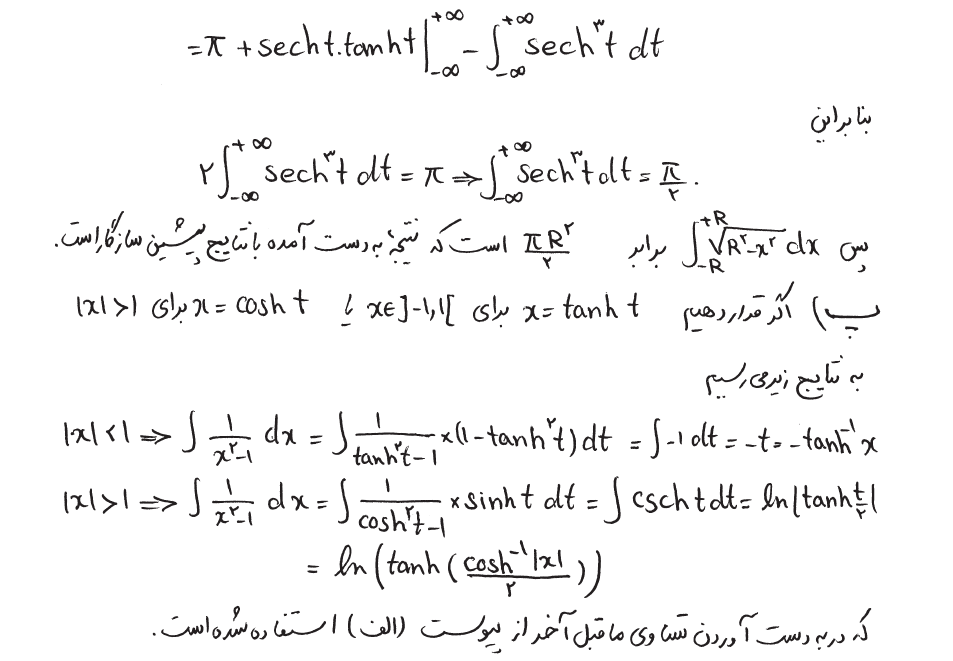 = π + sech t . tanh t |_{-∞}^{+∞} - ∫_{-∞}^{+∞} sech^۳ t dt
بنابراین
۲∫_{-∞}^{+∞} sech^۳ t dt = π ⇒ ∫_{-∞}^{+∞} sech^۳ t dt = π/۲ .
پس ∫_{-R}^{+R} √(R^۲-x^۲) dx برابر πR^۲/۲ است که نتیجهٔ به دست آمده با نتایج پیشین سازگار است.
پ) اگر قرار دهیم x = tanh t برای x∈]-۱,۱[ یا x = cosh t برای |x|>۱
به نتایج زیر می رسیم
|x|<۱ ⇒ ∫ ۱/(x^۲-۱) dx = ∫ ۱/(tanh^۲ t-۱) ×(۱-tanh^۲ t) dt = ∫-۱ dt = -t = -tanh^{-۱} x
|x|>۱ ⇒ ∫ ۱/(x^۲-۱) dx = ∫ ۱/(cosh^۲ t-۱) × sinh t dt = ∫ csch t dt = ln|tanh t/۲|
= ln(tanh(cosh^{-۱}|x|/۲))
که در به دست آوردن تساوی ماقبل آخر از پیوست (الف) استفاده شده است.